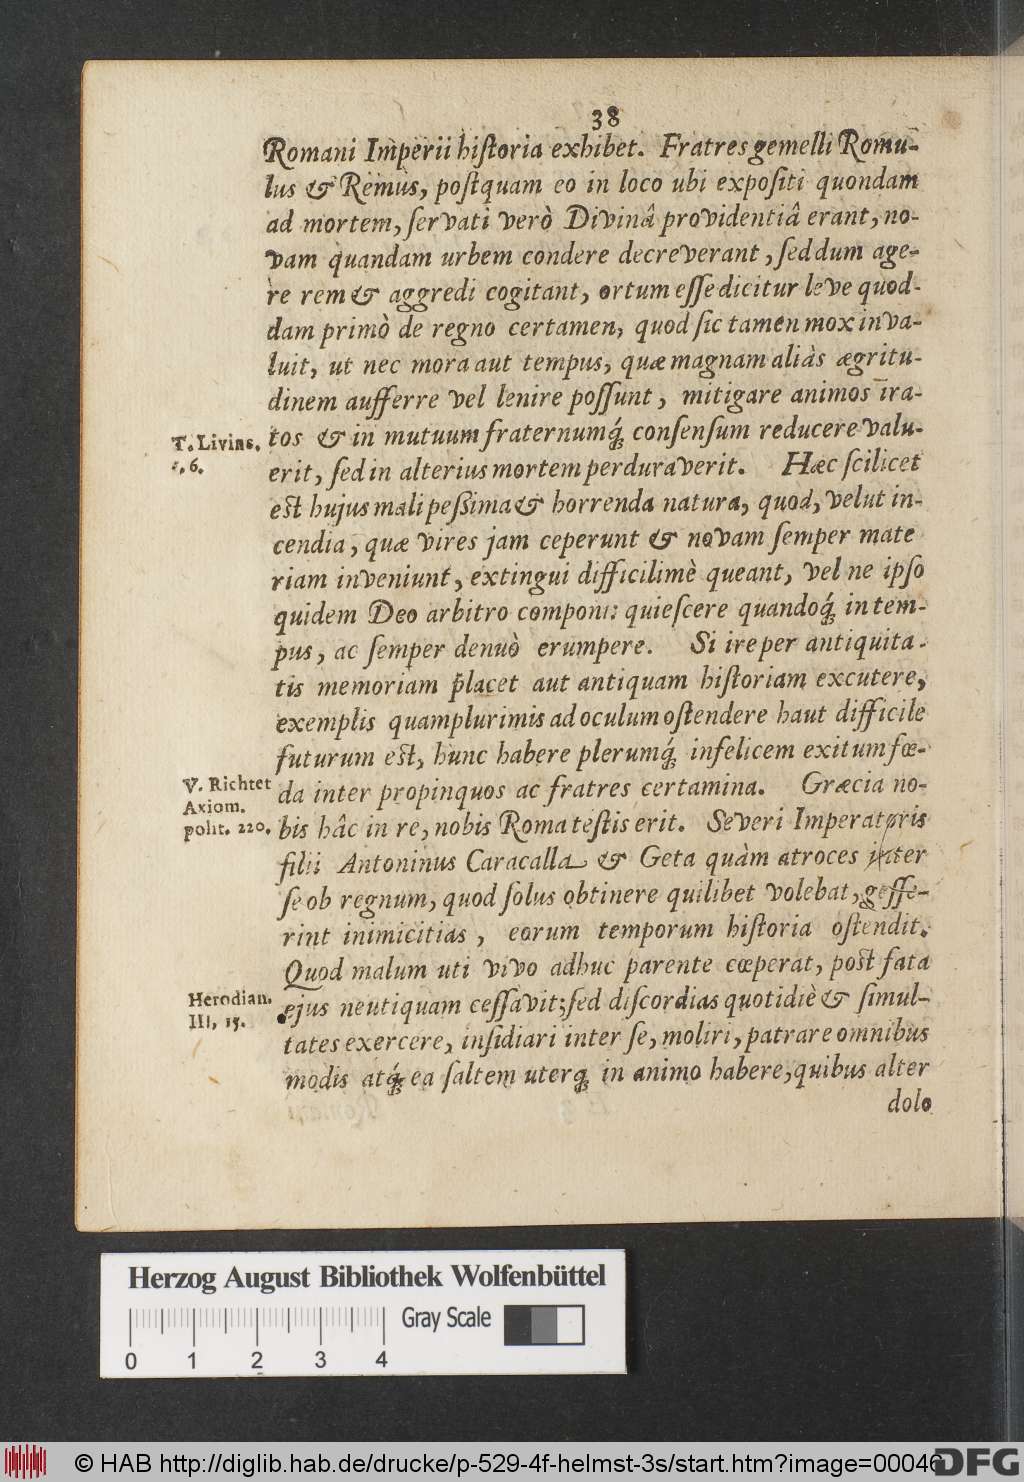 38
Romani Imperii hiſtoria exhibet. Fratres gemelli Romu-
lus & Remus, poſtquam eo in loco ubi expoſiti quondam
ad mortem, ſervati verò Divinâ providentiâ erant, no-
vam quandam urbem condere decreverant, ſed dum age-
re rem & aggredi cogitant, ortum eſſe dicitur leve quod-
dam primò de regno certamen, quod ſic tamen mox inva-
luit, ut nec mora aut tempus, quæ magnam aliàs ægritu-
dinem aufferre vel lenire poſſunt, mitigare animos ira-
T. Livius.
6.
tos & in mutuum fraternumq́; conſenſum reducere valu-
erit, ſed in alterius mortem perduraverit. Hæc ſcilicet
est hujus mali peßima & horrenda natura, quod, velut in-
cendia, quæ vires jam ceperunt & novam ſemper mate
riam inveniunt, extingui difficilimè queant, vel ne ipſo
quidem Deo arbitro componi: quieſcere quandoq́; in tem-
pus, ac ſemper denuò erumpere. Si ire per antiquita-
tis memoriam placet aut antiquam hiſtoriam excutere,
exemplis quamplurimis ad oculum oſtendere haut difficile
futurum est, hunc habere plerumq́; infelicem exitum fœ-
V. Richter
Axiom.
polit. 220.
da inter propinquos ac fratres certamina. Græcia no-
bis hâc in re, nobis Roma teſtis erit. Severi Imperatoris
filii Antoninus Caracalla & Geta quàm atroces inter
ſe ob regnum, quod ſolus obtinere quilibet volebat, geſſe-
rint inimicitias, eorum temporum hiſtoria oſtendit.
Quod malum uti vivo adhuc parente cœperat, post fata
Herodian.
III, 15.
ejus neutiquam ceſſavit; ſed diſcordias quotidiè & ſimul-
tates exercere, inſidiari inter ſe, moliri, patrare omnibus
modis atq́; ea ſaltem uterq; in animo habere, quibus alter
dolo
Herzog August Bibliothek Wolfenbüttel
Gray Scale
0 1 2 3 4
© HAB http://diglib.hab.de/drucke/p-529-4f-helmst-3s/start.htm?image=00046
DFG